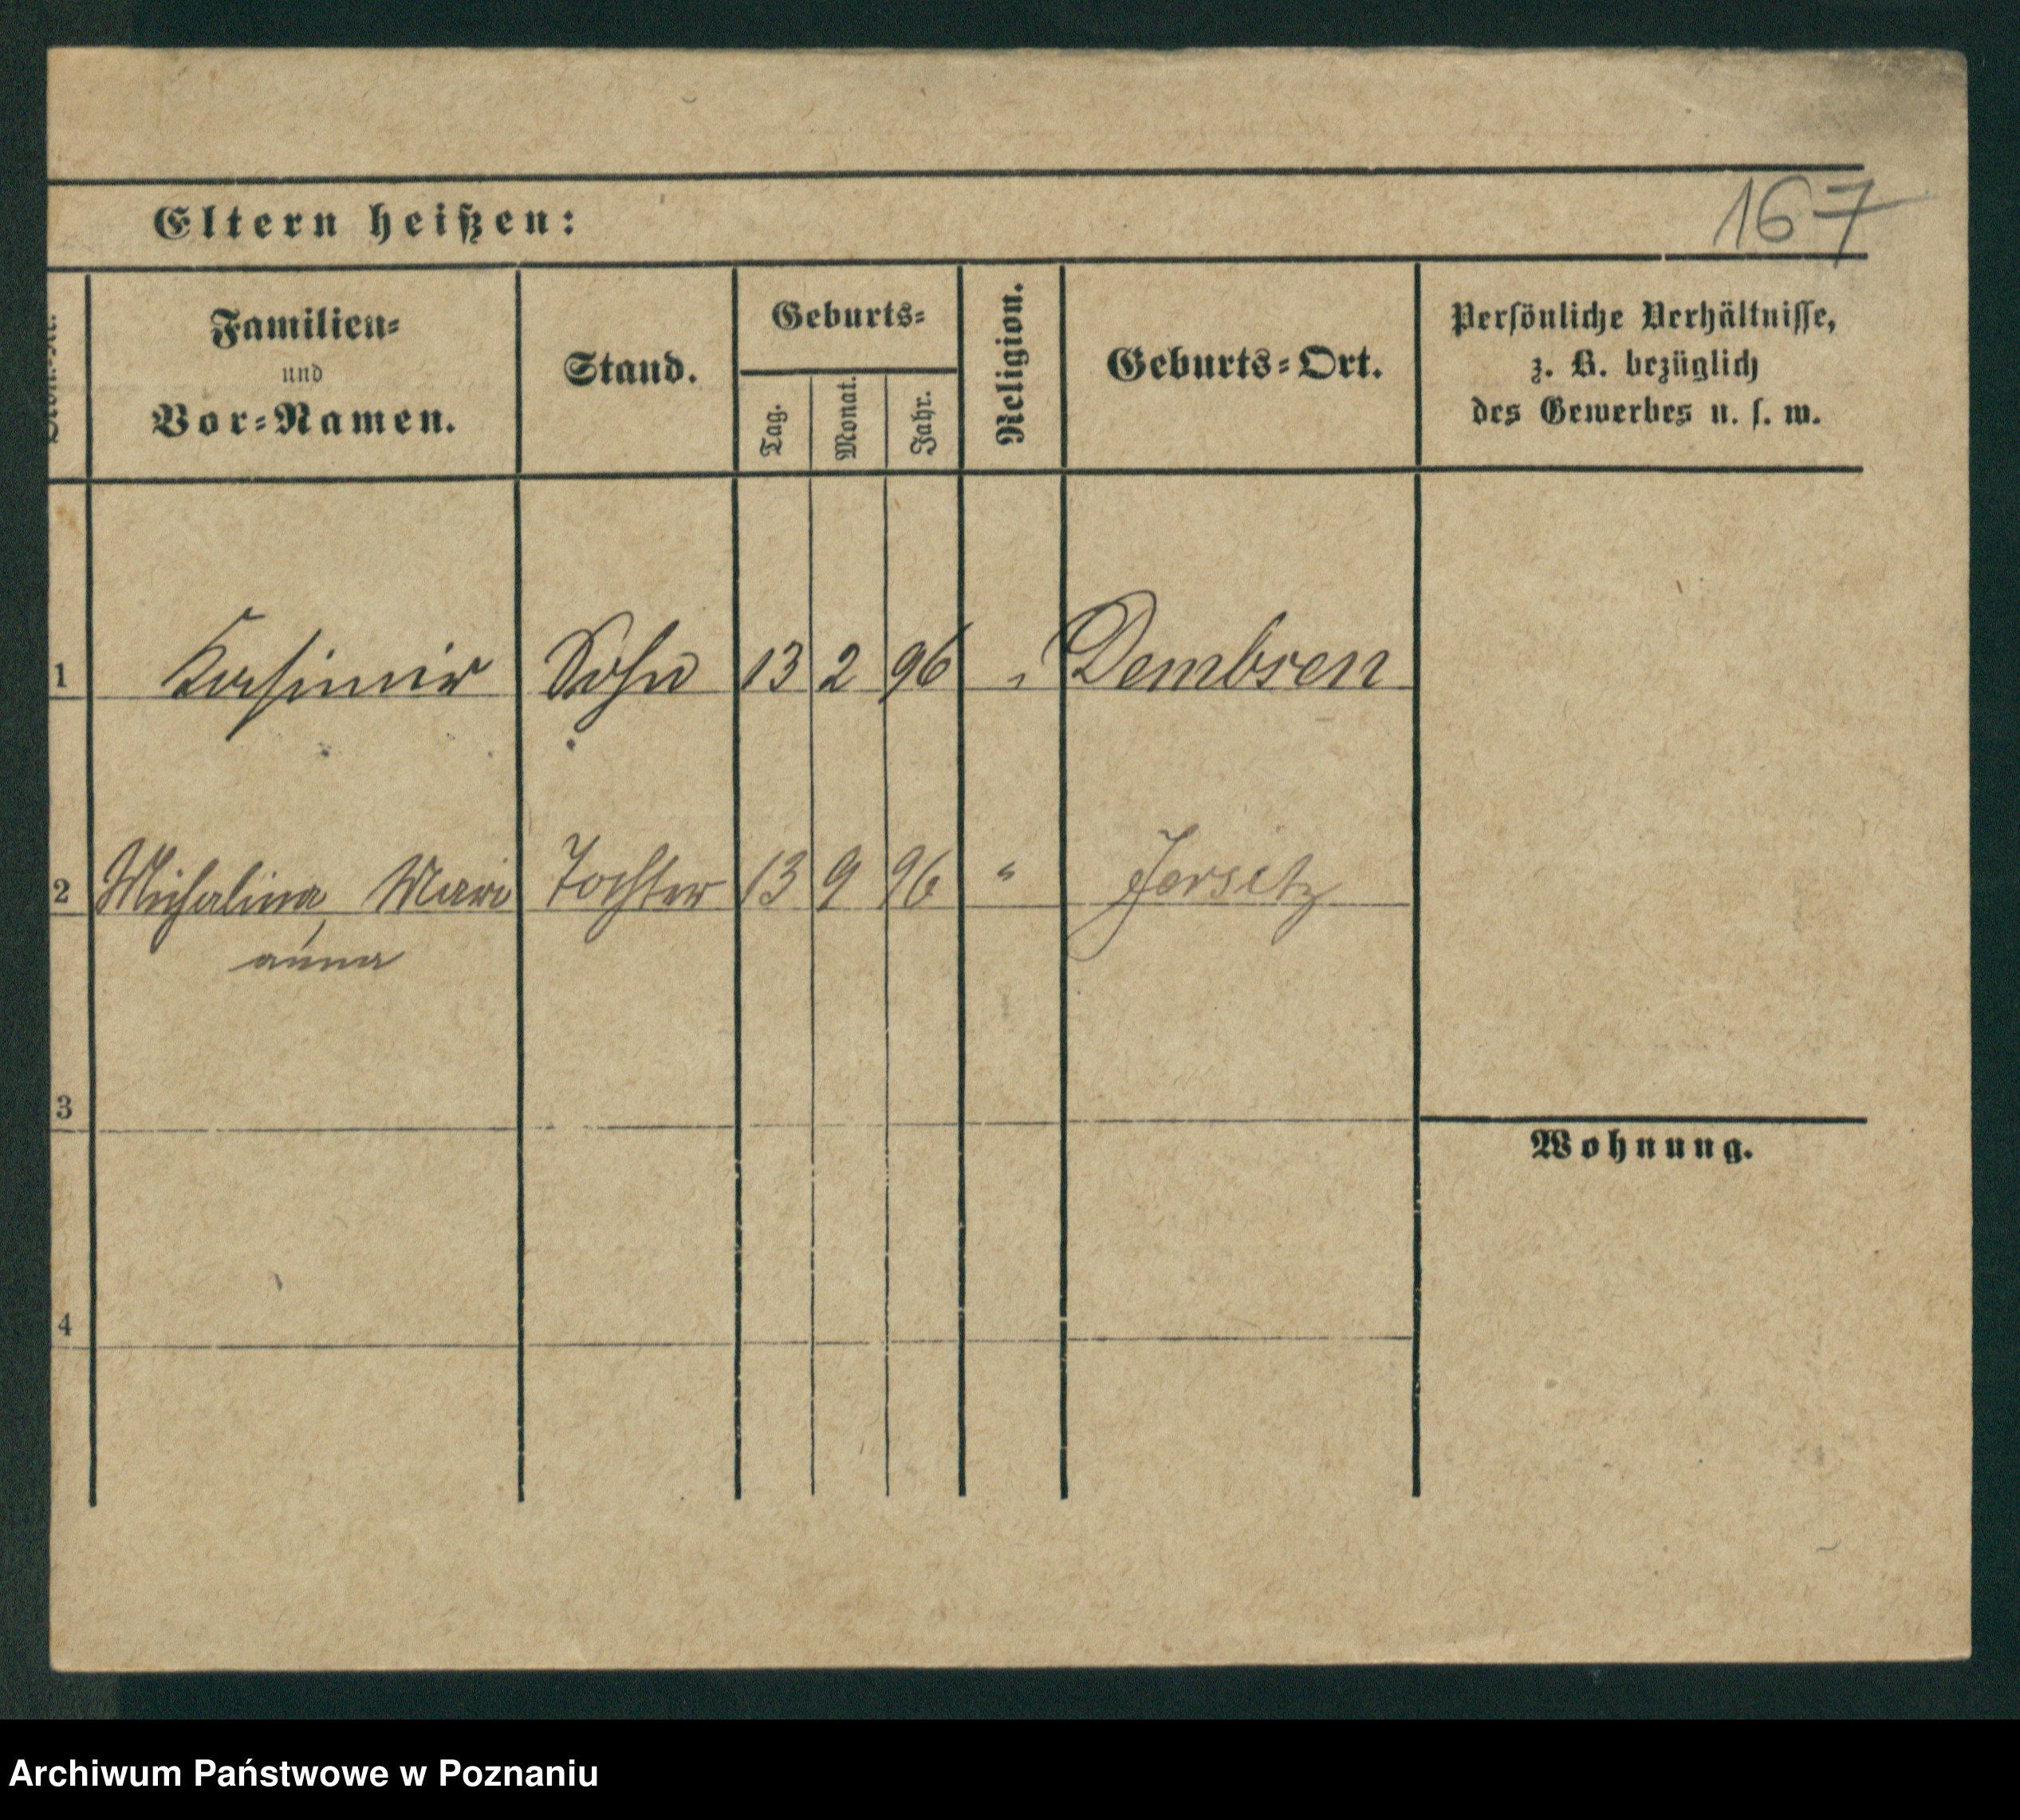 167
Eltern heißen:
Familien=
und
Vor=Namen.
Stand.
Geburts=
Tag.
Monat.
Jahr.
Religion.
Geburts=Ort.
Persönliche Verhältnisse,
z. B. bezüglich
des Gewerbes u. s. w.
1 Kasimir Sohn 13 2 96 " Dembsen
2 Michalina, Mari Tochter 13 9 96 " Jersitz
anna
3
4
Wohnung.
Archiwum Państwowe w Poznaniu